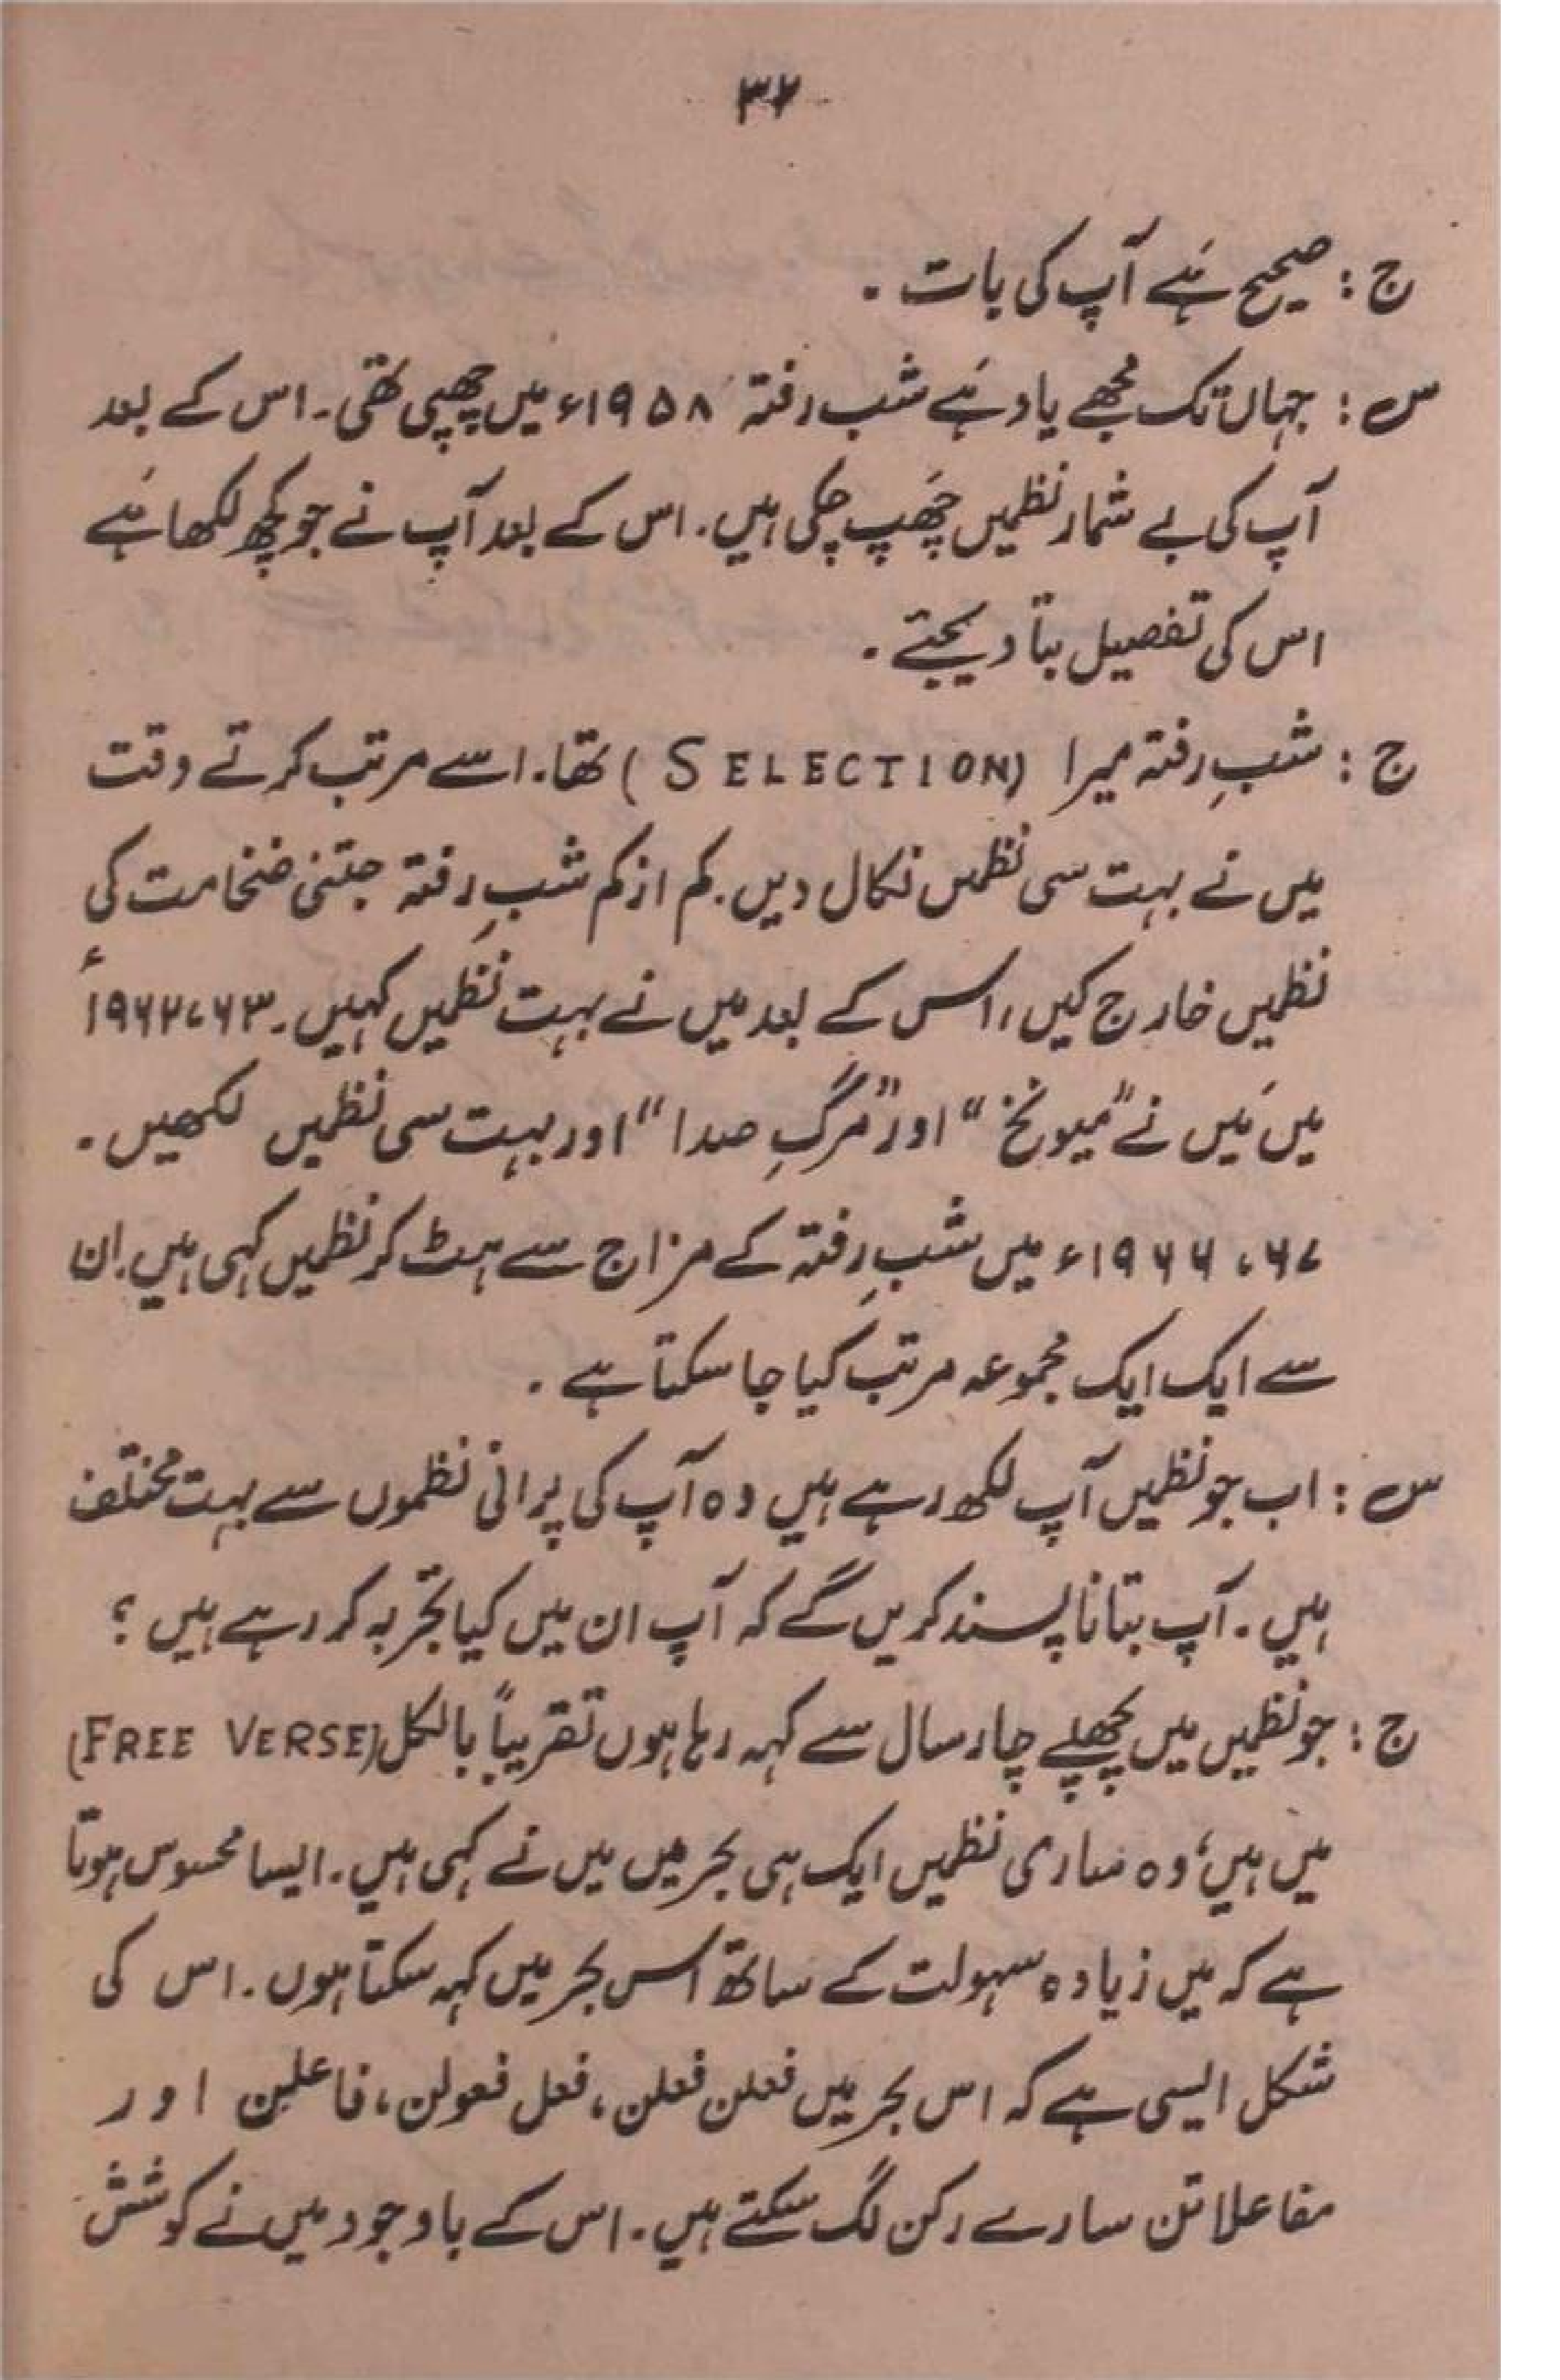 ۳۲
ج : صحیح ہَے آپ کی بات ۔
س : جہاں تک مجھے یاد ہَے شب رفتہ ۱۹۵۸ء میں چھپی تھی۔ اس کے بعد
آپ کی بے شمار نظمیں چھَپ چکی ہیں۔ اس کے بعد آپ نے جو کچھ لکھا ہَے
اس کی تفصیل بتا دیجئے ۔
ج : شبِ رفتہ میرا (SELECTION) تھا۔ اسے مرتب کرتے وقت
میں نے بہت سی نظمیں نکال دیں۔ کم از کم شبِ رفتہ جتنی ضخامت کی
نظمیں خارج کیں، اس کے بعد میں نے بہت نظمیں کہیں۔ ۶۳،۱۹۶۲ء
میں مَیں نے "میونخ" اور "مرگِ صدا" اور بہت سی نظمیں لکھیں ۔
۶۷، ۱۹۶۶ء میں شبِ رفتہ کے مزاج سے ہٹ کر نظمیں کہی ہیں۔ ان
سے ایک ایک مجموعہ مرتب کیا جا سکتا ہے ۔
س : اب جو نظمیں آپ لکھ رہے ہیں وہ آپ کی پرانی نظموں سے بہت مختلف
ہیں۔ آپ بتانا پسند کریں گے کہ آپ ان میں کیا تجربہ کر رہے ہیں ؟
ج : جو نظمیں میں پچھلے چار سال سے کہہ رہا ہوں تقریباً بالکل (FREE VERSE)
میں ہیں، وہ ساری نظمیں ایک ہی بحر میں میں نے کہی ہیں۔ ایسا محسوس ہوتا
ہے کہ میں زیادہ سہولت کے ساتھ اس بحر میں کہہ سکتا ہوں۔ اس کی
شکل ایسی ہے کہ اس بحر میں فعلن فعلن، فعل فعولن، فاعلین اور
مفاعلاتن سارے رکن لگ سکتے ہیں۔ اس کے باوجود میں نے کوشش